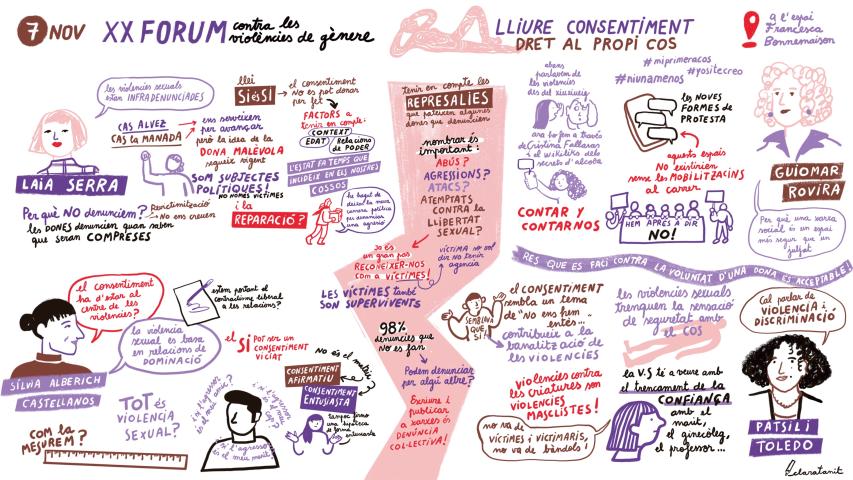 7 NOV
XX FORUM contra les
violències de gènere
LLIURE CONSENTIMENT
DRET AL PROPI COS
a l'espai
Francesca
Bonnemaison
les violències sexuals
estan INFRADENUNCIADES
LAIA SERRA
CAS ALVEZ
CAS la MANADA
ens serveixen
per avançar
però la idea de la
DONA MALÈVOLA
segueix vigent
SOM SUBJECTES
POLÍTIQUES!
NO NOMÉS VÍCTIMES
Per què NO denunciem?
Revictimització
No ens creuen
les DONES denuncien quan saben
que seran COMPRESES
llei
SÍ és SÍ
el consentiment
No es pot donar
per fet
FACTORS a
tenir en compte:
CONTEXT
EDAT
Relacions
de PODER
L'ESTAT FA TEMPS QUE
INCIDEIX EN ELS NOSTRES
COSSOS
i la
REPARACIÓ?
ha hagut de
deixar la meva
carrera política
per denunciar
una agressió
tenir en compte les
REPRESÀLIES
que pateixen algunes
dones que denuncien
nombrar és
important:
ABÚS?
AGRESSIONS?
ATACS?
ATEMPTATS
CONTRA LA
LLIBERTAT
SEXUAL?
Ja és
un gran pas
RECONÈIXER-NOS
com a VÍCTIMES!
VÍCTIMA no vol
dir no tenir
agència
LES VÍCTIMES també
SÓN SUPERVIVENTS
98%
denúncies que
No es fan
Podem denunciar
per algú altre?
Escriure i
publicar
a xarxes és
DENÚNCIA
COL·LECTIVA!
abans
parlàvem de
les violències
des del xiuxiueig
ara ho fem a través
de Cristina Fallaras
i el wikiliks dels
secrets d'alcoba
CONTAR Y
CONTARNOS
#miprimeracos
#niunamenos
#yositecreo
les NOVES
FORMES de
PROTESTA
aquests espais
NO existirien
sense les MOBILITZACINS
al carrer
HEM APRÈS A DIR
NO!
GUIOMAR
ROVIRA
Per què una xarxa
social és un espai
més segur que un
jutjat
RES QUE ES FACI CONTRA LA VOLUNTAT D'UNA DONA ÉS ACCEPTABLE!
el consentiment
ha d'estar al
centre de les
violències?
estem portant el
contractisme liberal
a les relacions?
la violència
sexual es basa
en relacions de
DOMINACIÓ
SÍLVIA ALBERICH
CASTELLANOS
COM la
MESUREM?
TOT és
violència
SEXUAL?
el SÍ POT SER un
CONSENTIMENT
VICIAT
i si l'agressor
és el meu amic?
i si l'agressor
és el meu marit?
No és el mateix
CONSENTIMENT
AFIRMATIU
CONSENTIMENT
ENTUSIASTA
SEMBLA
QUE SÍ
el CONSENTIMENT
sembla un tema
de "no ens hem
entès"...
contribueix a la
banalització de
les VIOLÈNCIES
violències contra
les criatures són
VIOLÈNCIES
MASCLISTES!
no va de
VÍCTIMES i VICTIMARIS,
no va de bàndols!
les violències sexuals
trenquen la sensació
de seguretat amb
el COS
la V.S té a veure amb
el trencament de la
CONFIANÇA
amb el
marit,
el ginecòleg,
el professor...
Cal parlar de
VIOLÈNCIA i
DISCRIMINACIÓ
PATSILÍ
TOLEDO
Eclaratanit